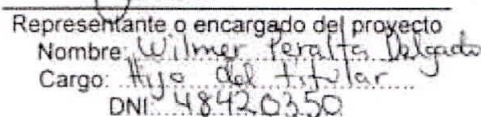 Representante o encargado del proyecto
Nombre: Wilmer Peralta Delgado
Cargo: Hijo del titular
DNI: 48420350